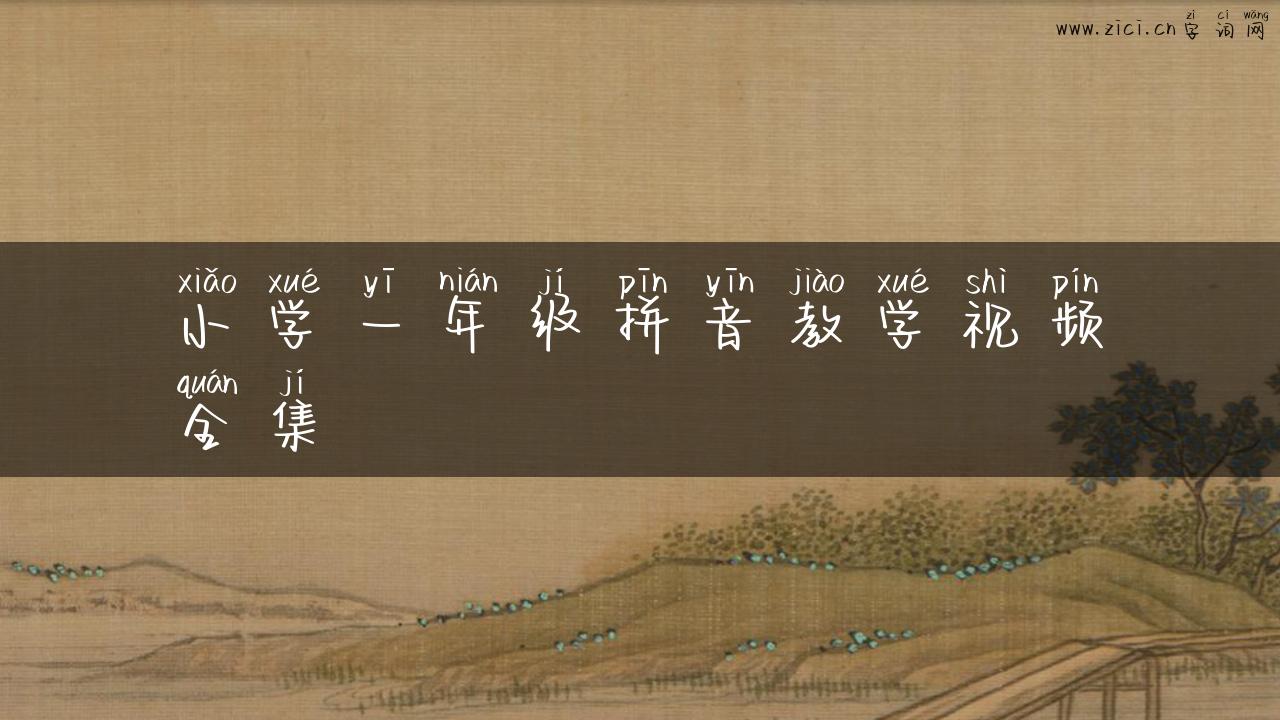 zì cí wǎng
www.zici.cn字词网
xiǎo xué yī nián jí pīn yīn jiào xué shì pín
小学一年级拼音教学视频
quán jí
全集